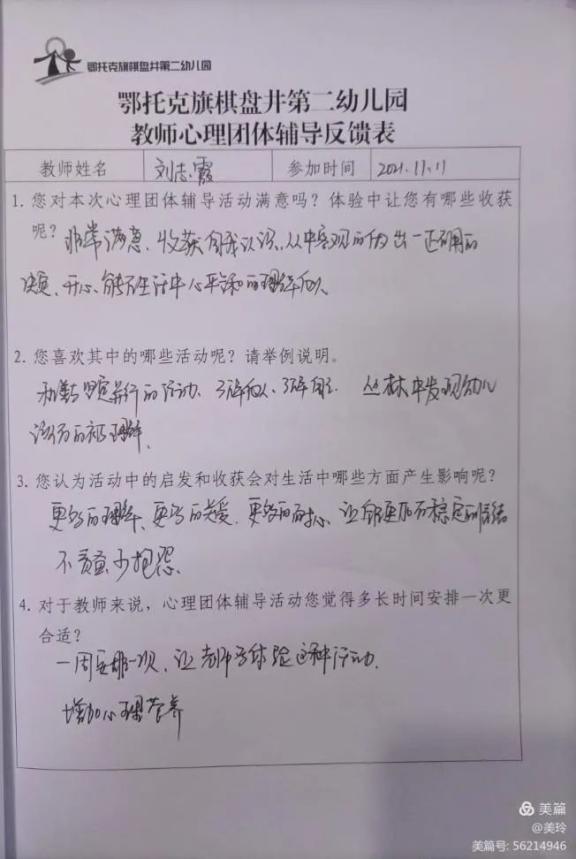 鄂托克旗棋盘井第二幼儿园
鄂托克旗棋盘井第二幼儿园
教师心理团体辅导反馈表
教师姓名 刘志霞 参加时间 2021.11.11
1. 您对本次心理团体辅导活动满意吗？体验中让您有哪些收获
呢？非常满意、收获自我认识，从中客观的作出一正确的
决定、开心、能在生活中心平和的理解他人
2. 您喜欢其中的哪些活动呢？请举例说明。
的活动、了解他人、了解自己. 丛林中发现幼儿
的被理解.
3. 您认为活动中的启发和收获会对生活中哪些方面产生影响呢？
更多的理解、更多的关爱、更多的耐心、让自己更加有稳定的情绪
不责备少抱怨.
4. 对于教师来说，心理团体辅导活动您觉得多长时间安排一次更
合适？
一周安排一次、让老师多体验这种活动.
增加心理营养
美篇
@美玲
美篇号: 56214946